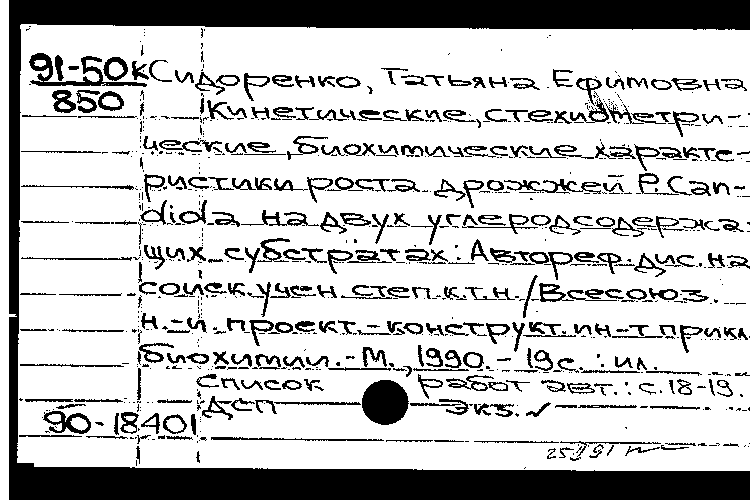 91-50к Сидоренко, Татьяна Ефимовна
850
Кинетические, стехиометри-
ческие, биохимические характе-
ристики роста дрожжей Р. Can-
dida на двух углеродсодержа-
щих субстратах: Автореф. дис. на
соиск. учен. степ. к.т.н. / Всесоюз.
н.-и. проект.-конструкт. ин-т прикл.
биохимии. - М., 1990. - 19 с. : ил.
Список работ авт.: с. 18-19.
ДСП экз. ✓
90-18401